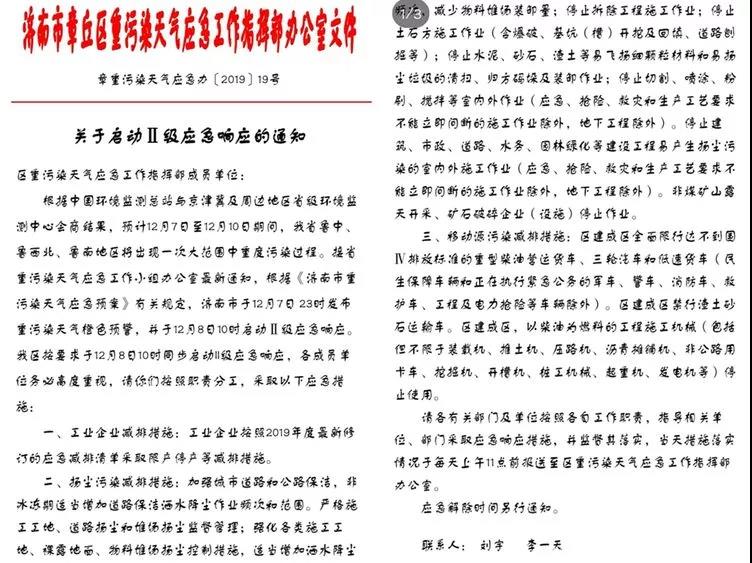 济南市章丘区重污染天气应急工作指挥部办公室文件
章重污染天气应急办〔2019〕19号
关于启动Ⅱ级应急响应的通知
区重污染天气应急工作指挥部成员单位：
根据中国环境监测总站与京津冀及周边地区省级环境监
测中心会商结果，预计12月7日至12月10日期间，我省鲁中、
鲁西北、鲁南地区将出现一次大范围中重度污染过程。接省
重污染天气应急工作小组办公室最新通知，根据《济南市重
污染天气应急预案》有关规定，济南市于12月7日23时发布
重污染天气橙色预警，并于12月8日10时启动Ⅱ级应急响应。
我区按要求于12月8日10时同步启动II级应急响应，各成员单
位务必高度重视，请你们按照职责分工，采取以下应急措
施：
一、工业企业减排措施：工业企业按照2019年度最新修
订的应急减排清单采取限产停产等减排措施。
二、扬尘污染减排措施：加强城市道路和公路保洁，非
冰冻期适当增加道路保洁洒水降尘作业频次和范围。严格施
工工地、道路扬尘和堆场扬尘监督管理；强化各类施工工
地、裸露地面、物料堆场扬尘控制措施，适当增加洒水降尘
频次，减少物料堆场装卸量；停止拆除工程施工作业；停止
1/3
土石方施工作业（含爆破、基坑（槽）开挖及回填、道路刨
掘等）；停止水泥、砂石、渣土等易飞扬细颗粒材料和易扬
尘垃圾的清扫、归方码垛及装卸作业；停止切割、喷涂、粉
刷、搅拌等室内外作业（应急、抢险、救灾和生产工艺要求
不能立即间断的施工作业除外，地下工程除外）。停止建
筑、市政、道路、水务、园林绿化等建设工程易产生扬尘污
染的室内外施工作业（应急、抢险、救灾和生产工艺要求不
能立即间断的施工作业除外，地下工程除外）。非煤矿山露
天开采、矿石破碎企业（设施）停止作业。
三、移动源污染减排措施：区建成区全面限行达不到国
Ⅳ排放标准的重型柴油营运货车、三轮汽车和低速货车（民
生保障车辆和正在执行紧急公务的军车、警车、消防车、救
护车、工程及电力抢险等车辆除外）。区建成区禁行渣土砂
石运输车。区建成区，以柴油为燃料的工程施工机械（包括
但不限于装载机、推土机、压路机、沥青摊铺机、非公路用
卡车、挖掘机、开槽机、桩工机械、起重机、发电机等）停
止使用。
请各有关部门及单位按照各自工作职责，指导相关单
位、部门采取应急响应措施，并监督其落实，当天措施落实
情况于每天上午11点前报送至区重污染天气应急工作指挥部
办公室。
应急解除时间另行通知。
联系人： 刘宇 李一天